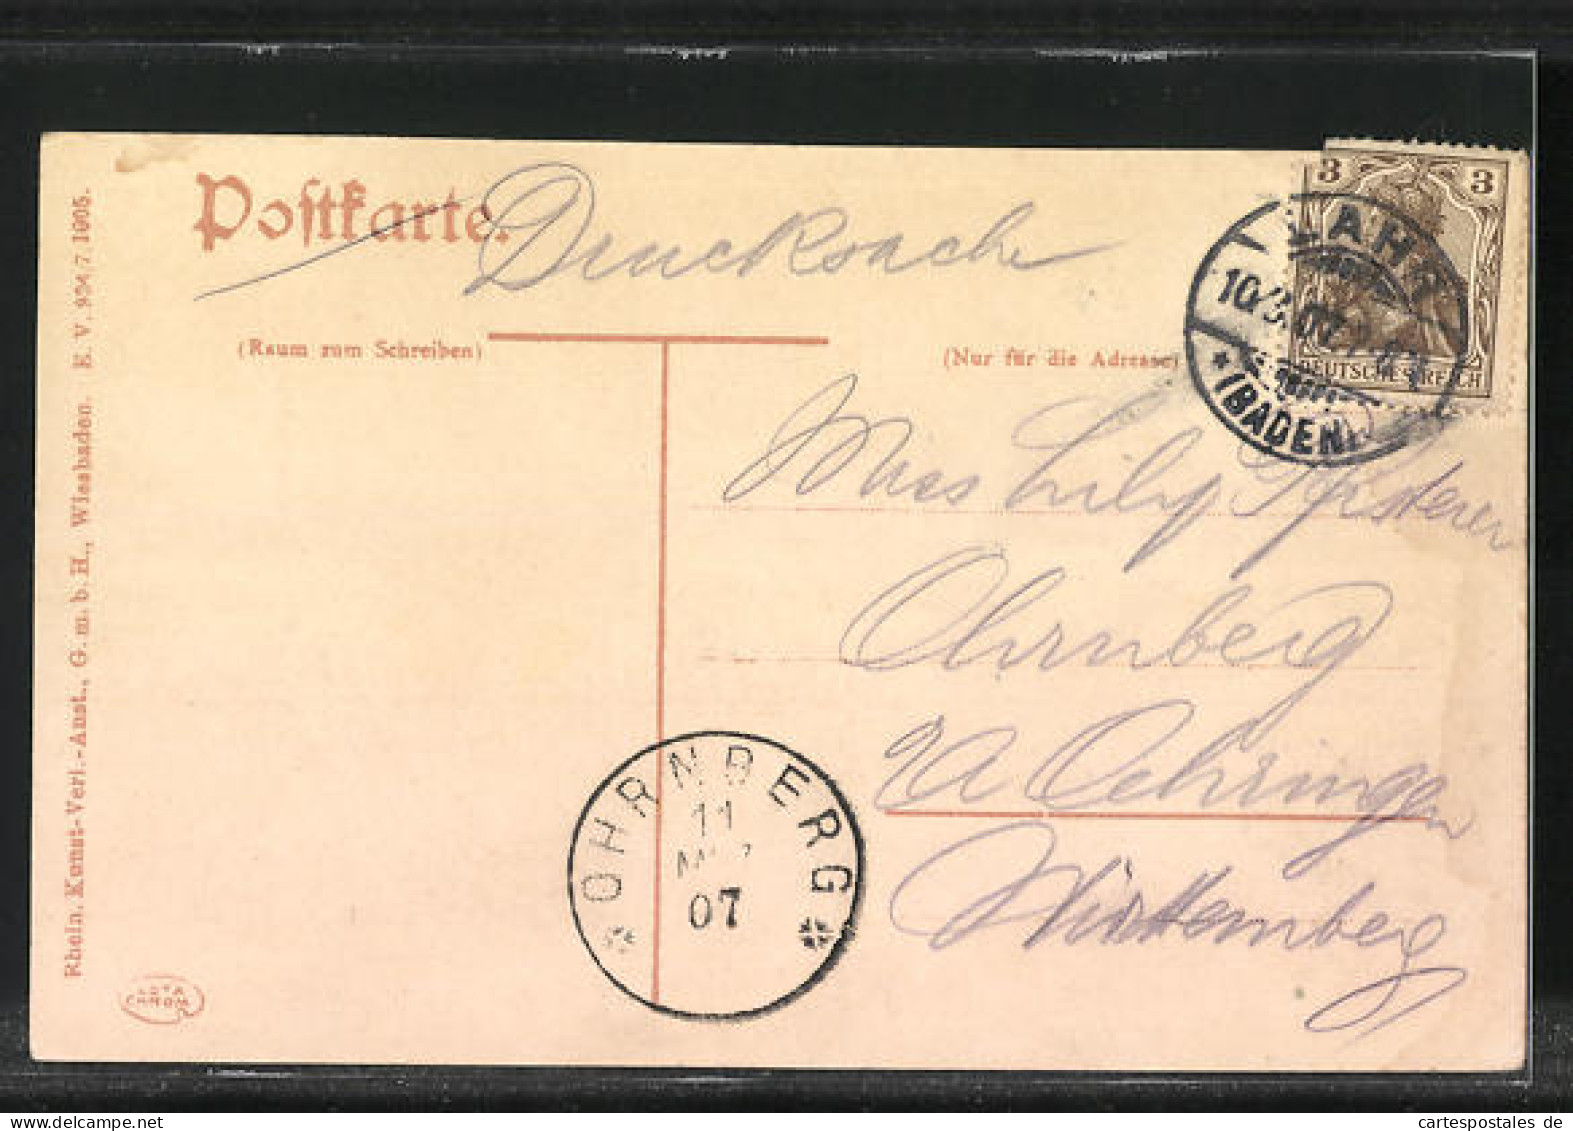 Postkarte.
Drucksache
3 3
LAHR
10/3.07.
(BADEN)
DEUTSCHES REICH
(Raum zum Schreiben)
(Nur für die Adresse)
Miss Lily Pfisterer
Ohrnberg
OA Oehringen
Württemberg
OHRNBERG
11
07
Rhein. Kunst-Verl.-Anst., G. m. b. H., Wiesbaden. E. V. 934/7. 1905.
AUTA
CHROM
cartespostales.de